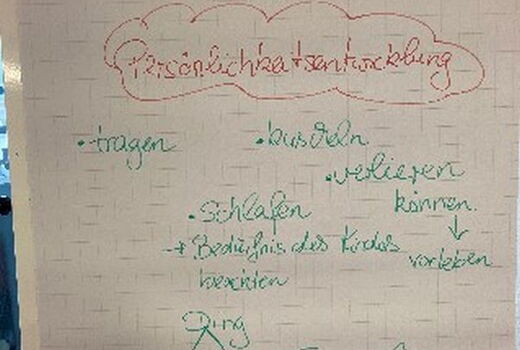 Persönlichkeitsentwicklung
• tragen
• kuscheln
• verlieren
können
↓
vorleben
• Schlafen
→ Bedürfnis des Kindes
beachten